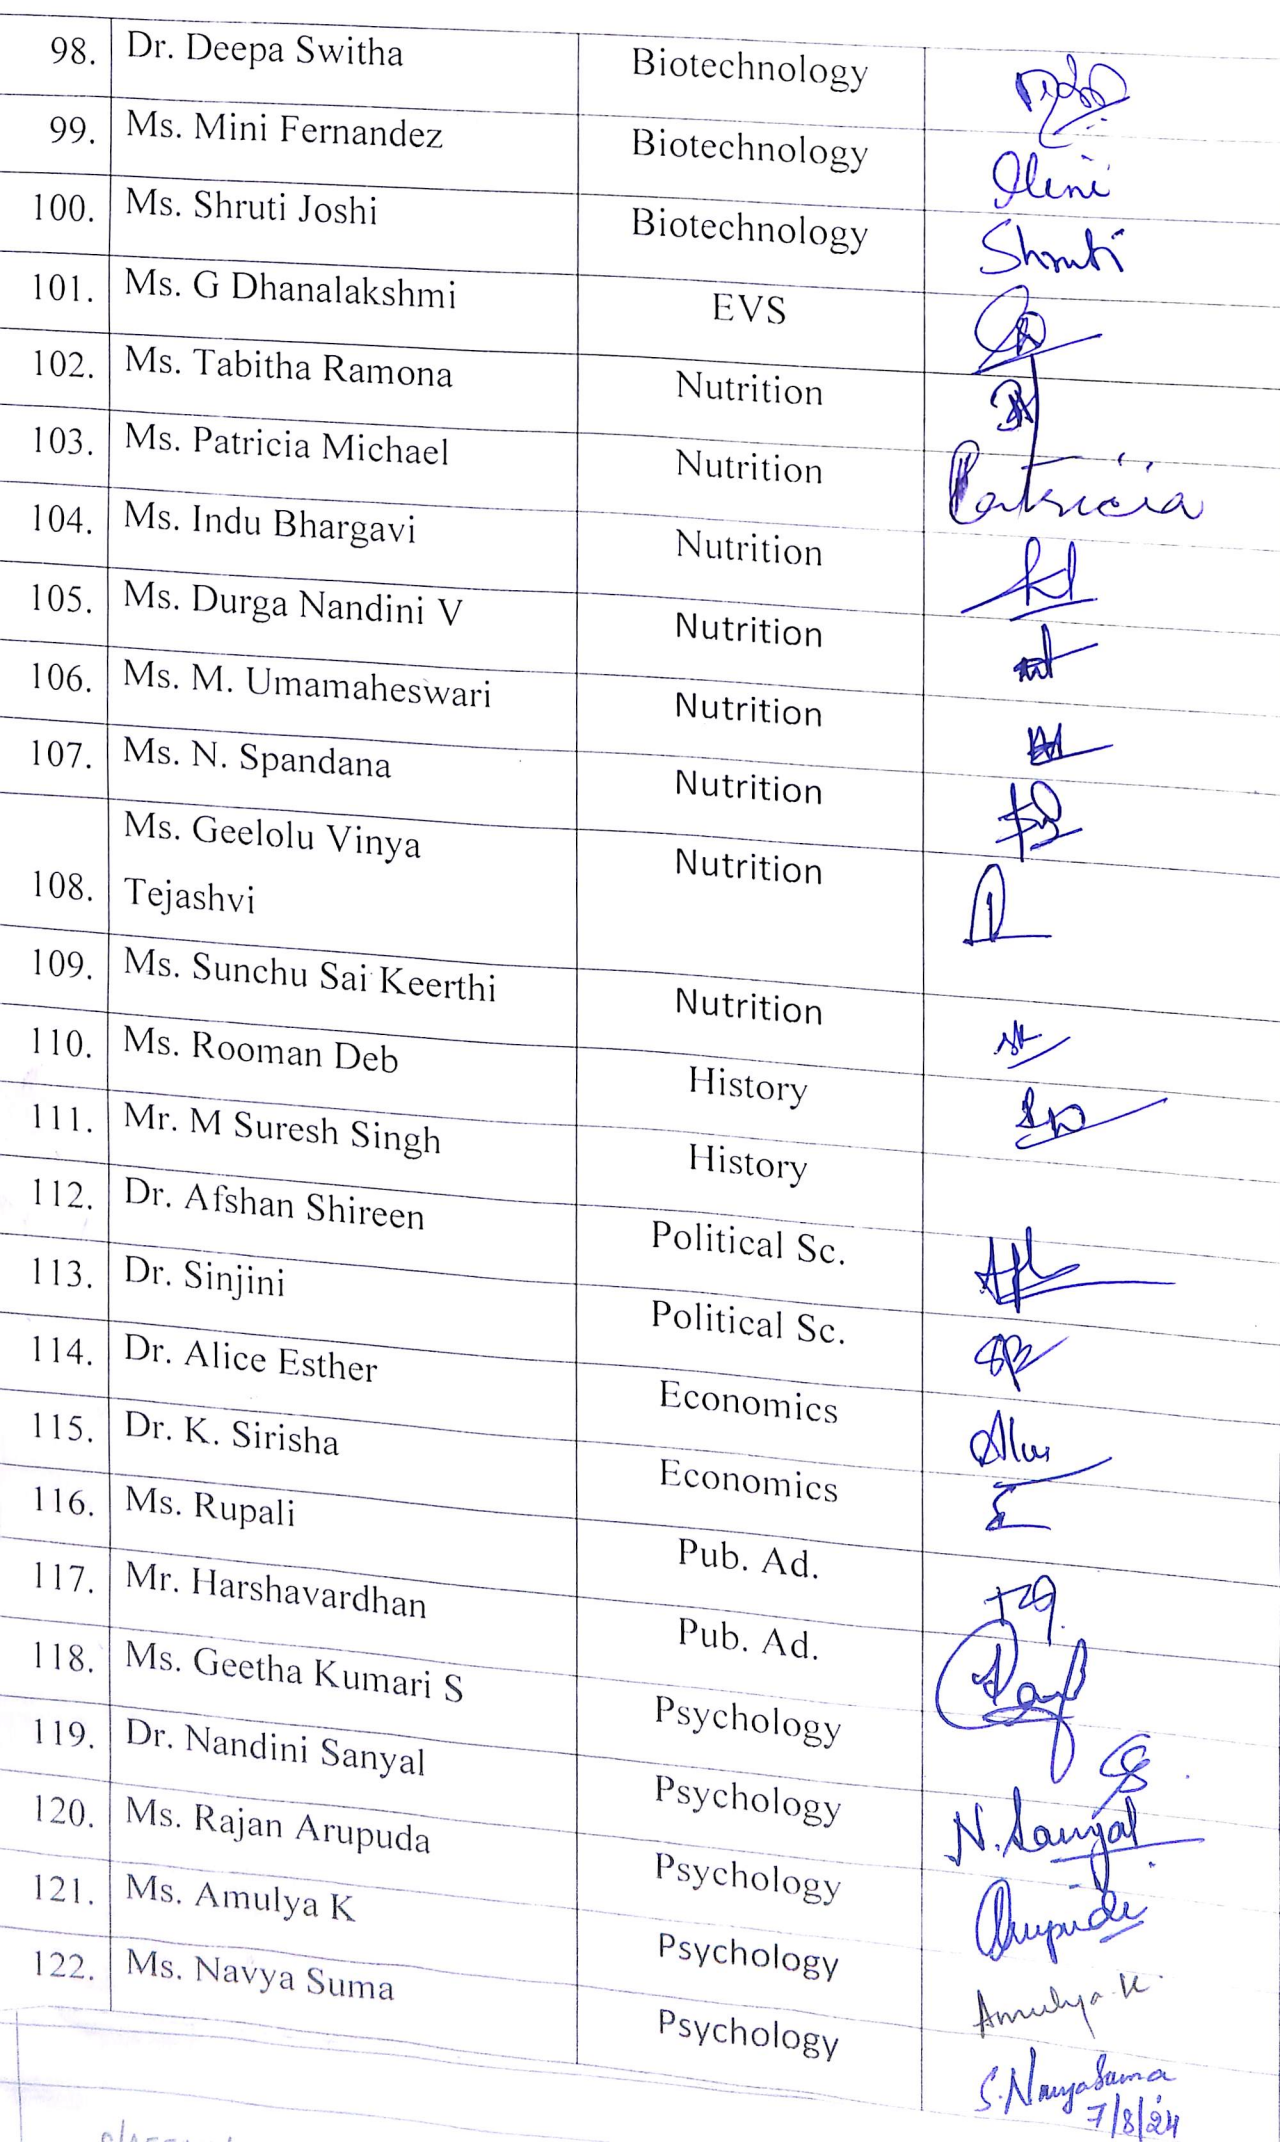 98. Dr. Deepa Switha Biotechnology
99. Ms. Mini Fernandez Biotechnology Mini
100. Ms. Shruti Joshi Biotechnology Shruti
101. Ms. G Dhanalakshmi EVS
102. Ms. Tabitha Ramona Nutrition
103. Ms. Patricia Michael Nutrition Patricia
104. Ms. Indu Bhargavi Nutrition
105. Ms. Durga Nandini V Nutrition
106. Ms. M. Umamaheswari Nutrition
107. Ms. N. Spandana Nutrition
Ms. Geelolu Vinya
108. Tejashvi Nutrition
109. Ms. Sunchu Sai Keerthi Nutrition
110. Ms. Rooman Deb History
111. Mr. M Suresh Singh History
112. Dr. Afshan Shireen Political Sc.
113. Dr. Sinjini Political Sc.
114. Dr. Alice Esther Economics
115. Dr. K. Sirisha Economics
116. Ms. Rupali Pub. Ad.
117. Mr. Harshavardhan Pub. Ad.
118. Ms. Geetha Kumari S Psychology
119. Dr. Nandini Sanyal Psychology N. Sanyal
120. Ms. Rajan Arupuda Psychology
121. Ms. Amulya K Psychology Amulya K
122. Ms. Navya Suma Psychology S. Navya Suma
7/8/24